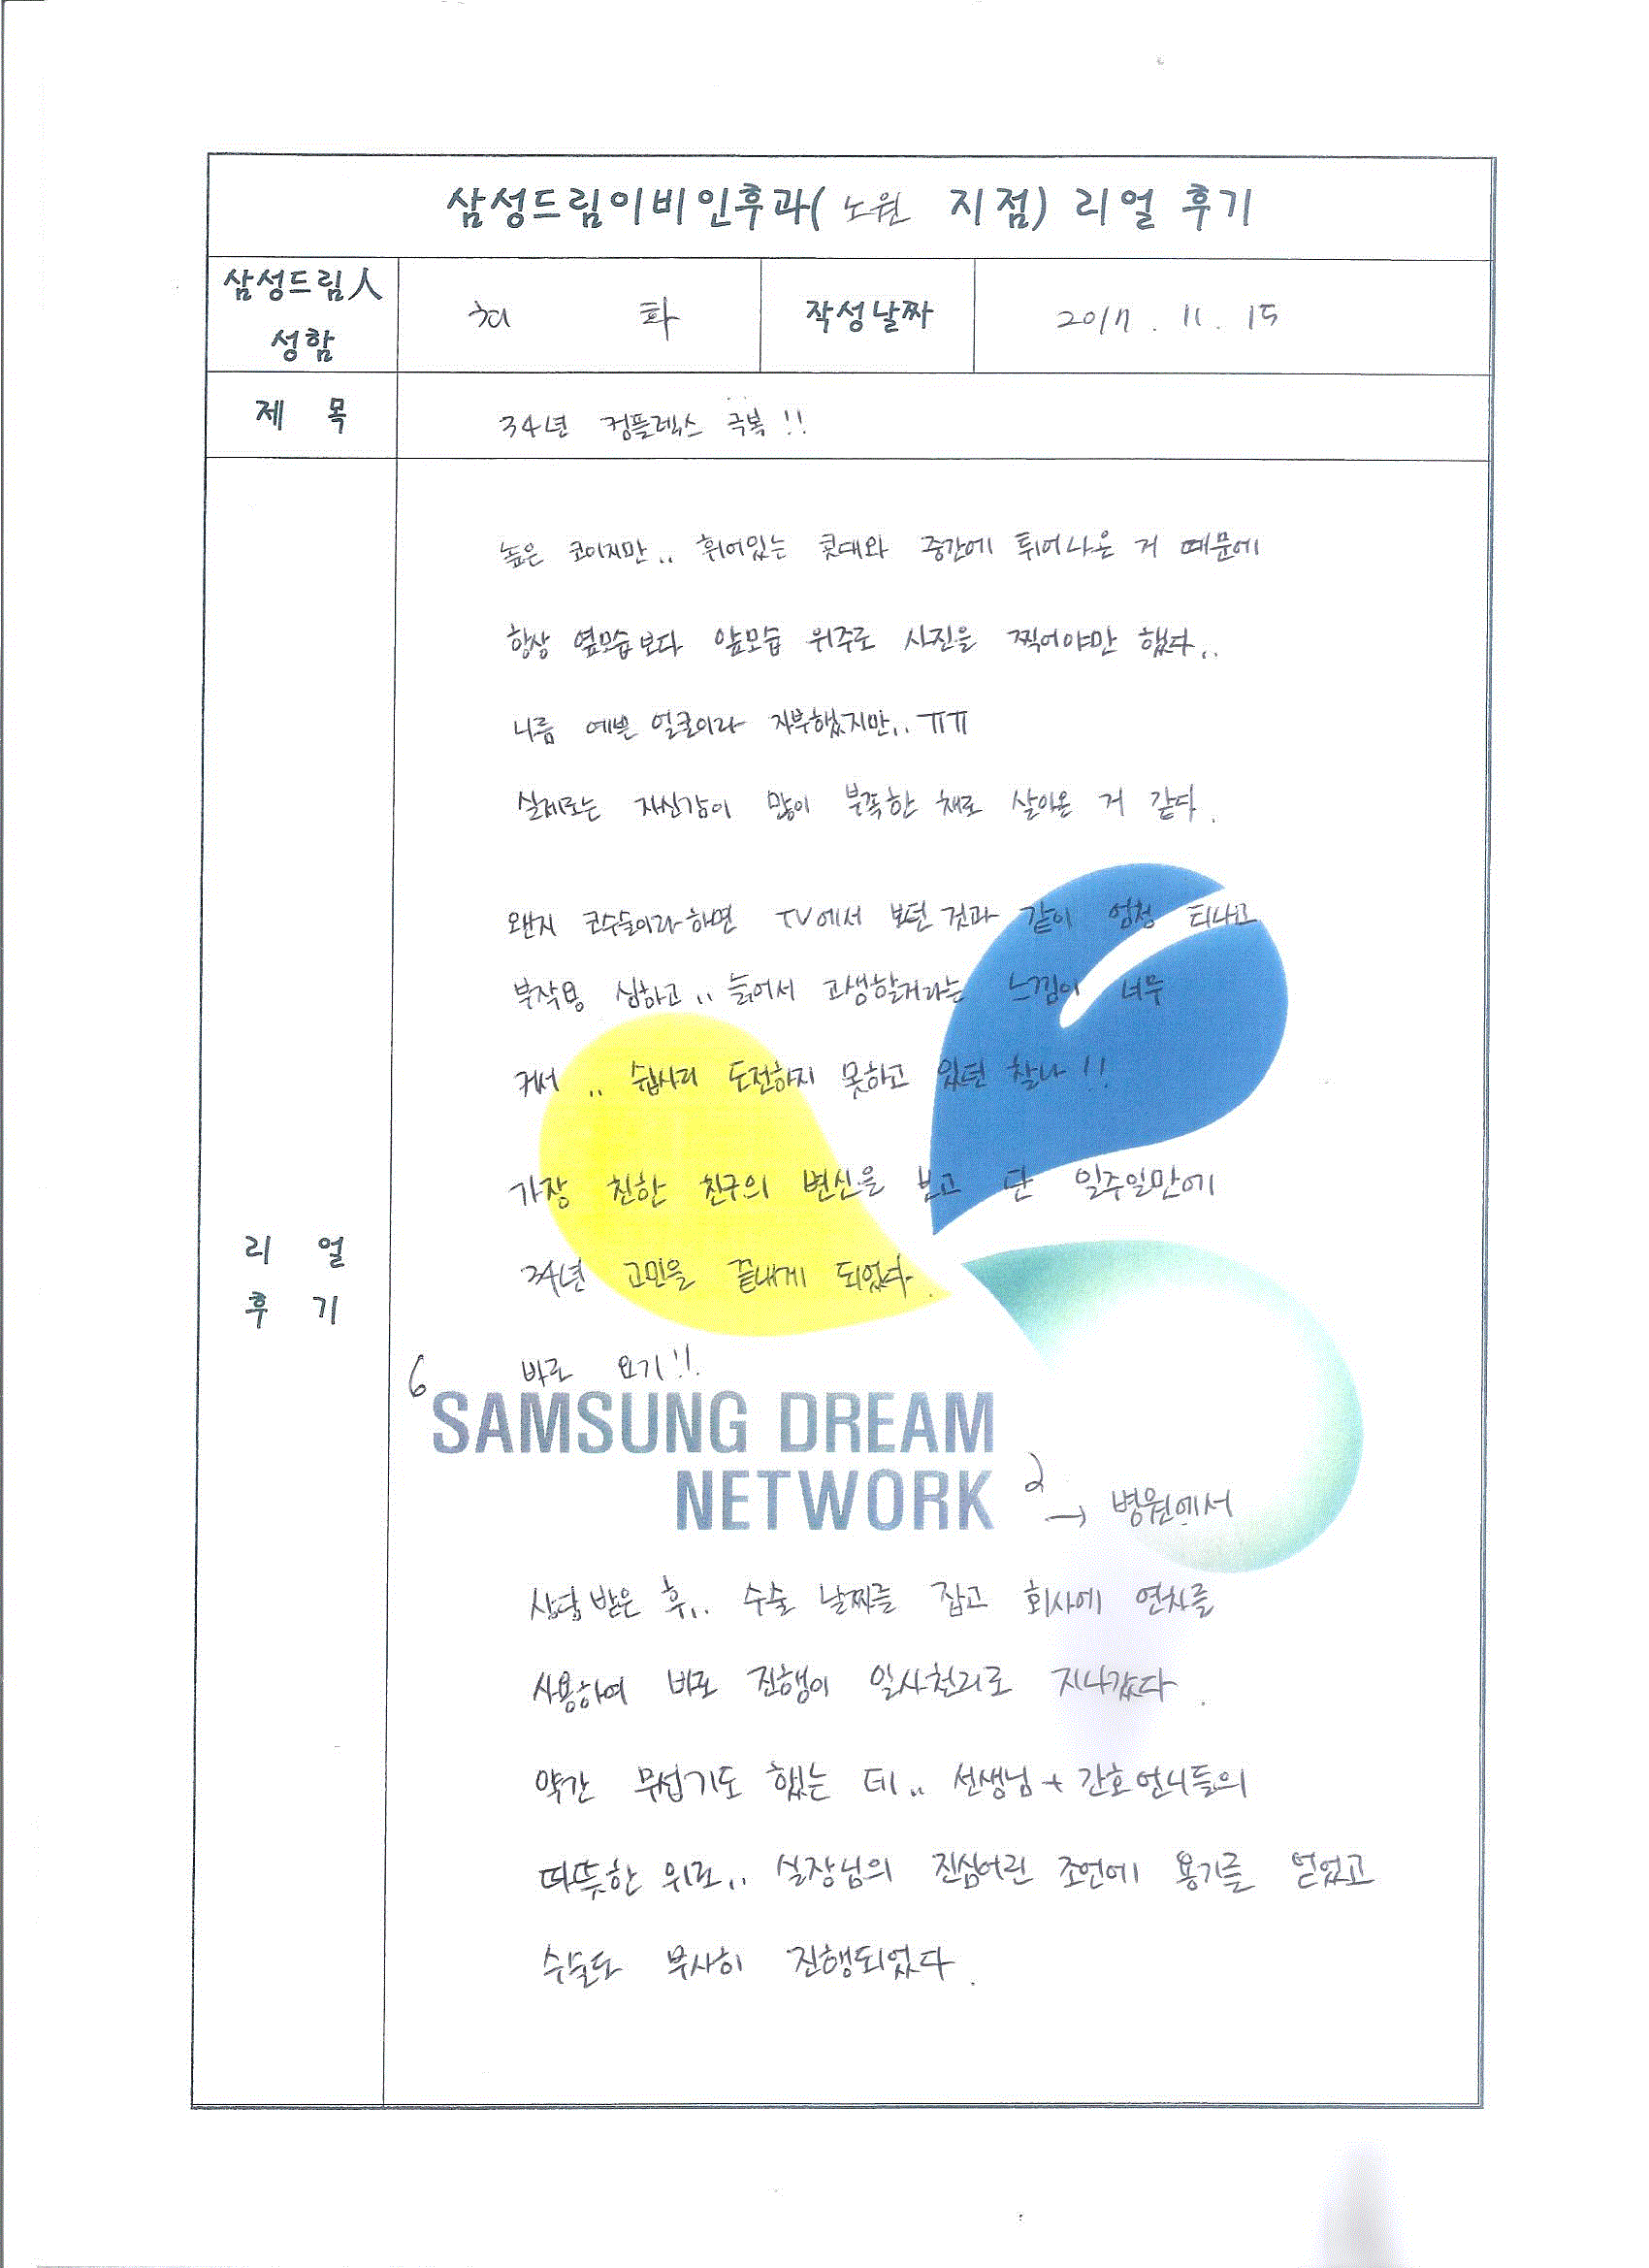 삼성드림이비인후과( 노원 지점) 리얼 후기
삼성드림人
성함
화
작성날짜
2017. 11. 15
제 목
34년 컴플렉스 극복!!
높은 코이지만.. 휘어있는 콧대와 중간에 튀어나온 거 때문에
항상 옆모습보다 앞모습 위주로 사진을 찍어야만 했다..
나름 예쁜 얼굴이라 자부했지만.. ㅠㅠ
실제로는 자신감이 많이 부족한 채로 살아온 거 같다.
왠지 코수술이라하면 TV에서 보던 것과 같이 엄청 티나고
부작용 심하고.. 늙어서 고생할거라는 느낌이 너무
커서.. 쉽사리 도전하지 못하고 있던 찰나!!
가장 친한 친구의 변신을 보고 단 일주일만에
34년 고민을 끝내게 되었다.
리 얼
후 기
바로 요기!!
6
SAMSUNG DREAM
NETWORK
2
→ 병원에서
상담 받은 후.. 수술 날짜를 잡고 회사에 연차를
사용하여 바로 진행이 일사천리로 지나갔다.
약간 무섭기도 했는 데.. 선생님 + 간호언니들의
따뜻한 위로.. 실장님의 진심어린 조언에 용기를 얻었고
수술도 무사히 진행되었다.